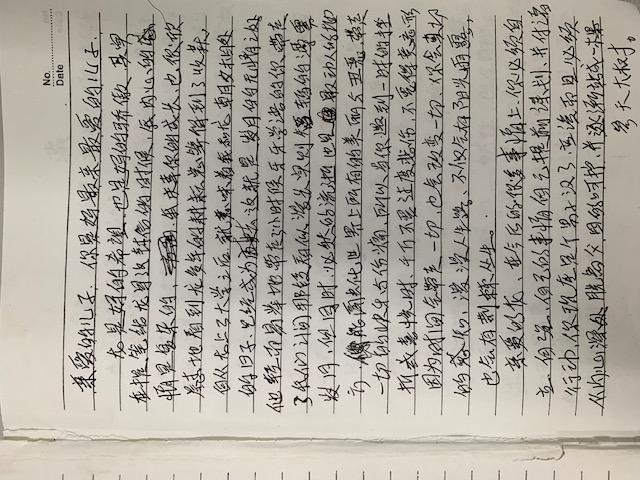 No.
Date
亲爱的儿子，你是妈最亲最爱的儿子.
龙是妈的希望，也是妈的骄傲，其实
在提笔给龙写这封信的时候，我内心的
情是复杂的，我庆幸你的成长，也很欣
慰地看到龙多年的耕耘总算得到了收获，
自从龙上了大学之后，就意味着我和龙朝夕相处
的日子，已经成为过去，这就是岁月的无情之处
他轻而易举地带走了小时候牙牙学语的你，带走
了我们之间那段看似漫长实则短暂的
岁月，但同时，必然的流逝也是最动人的地
方，能同化世界上所有的美丽与丑恶，带走
一切的快乐与伤痛，所以当你遇到一时的挫
折或喜悦时，千万不要过度悲伤，不要得意忘形
因为时间会带走一切，也会改变一切，你会真切
的感知，漫漫人生路，不仅会有阳光雨露，
也会有荆棘丛生。
亲爱的龙，在今后的很多事情上，你必须自
立、自强，自己的事情自己提前谋划，并付诸
行动，你现在是个男子汉了，应该而且必须
从内心深处脱离父母的呵护，并逐渐站成一棵
参天大树。